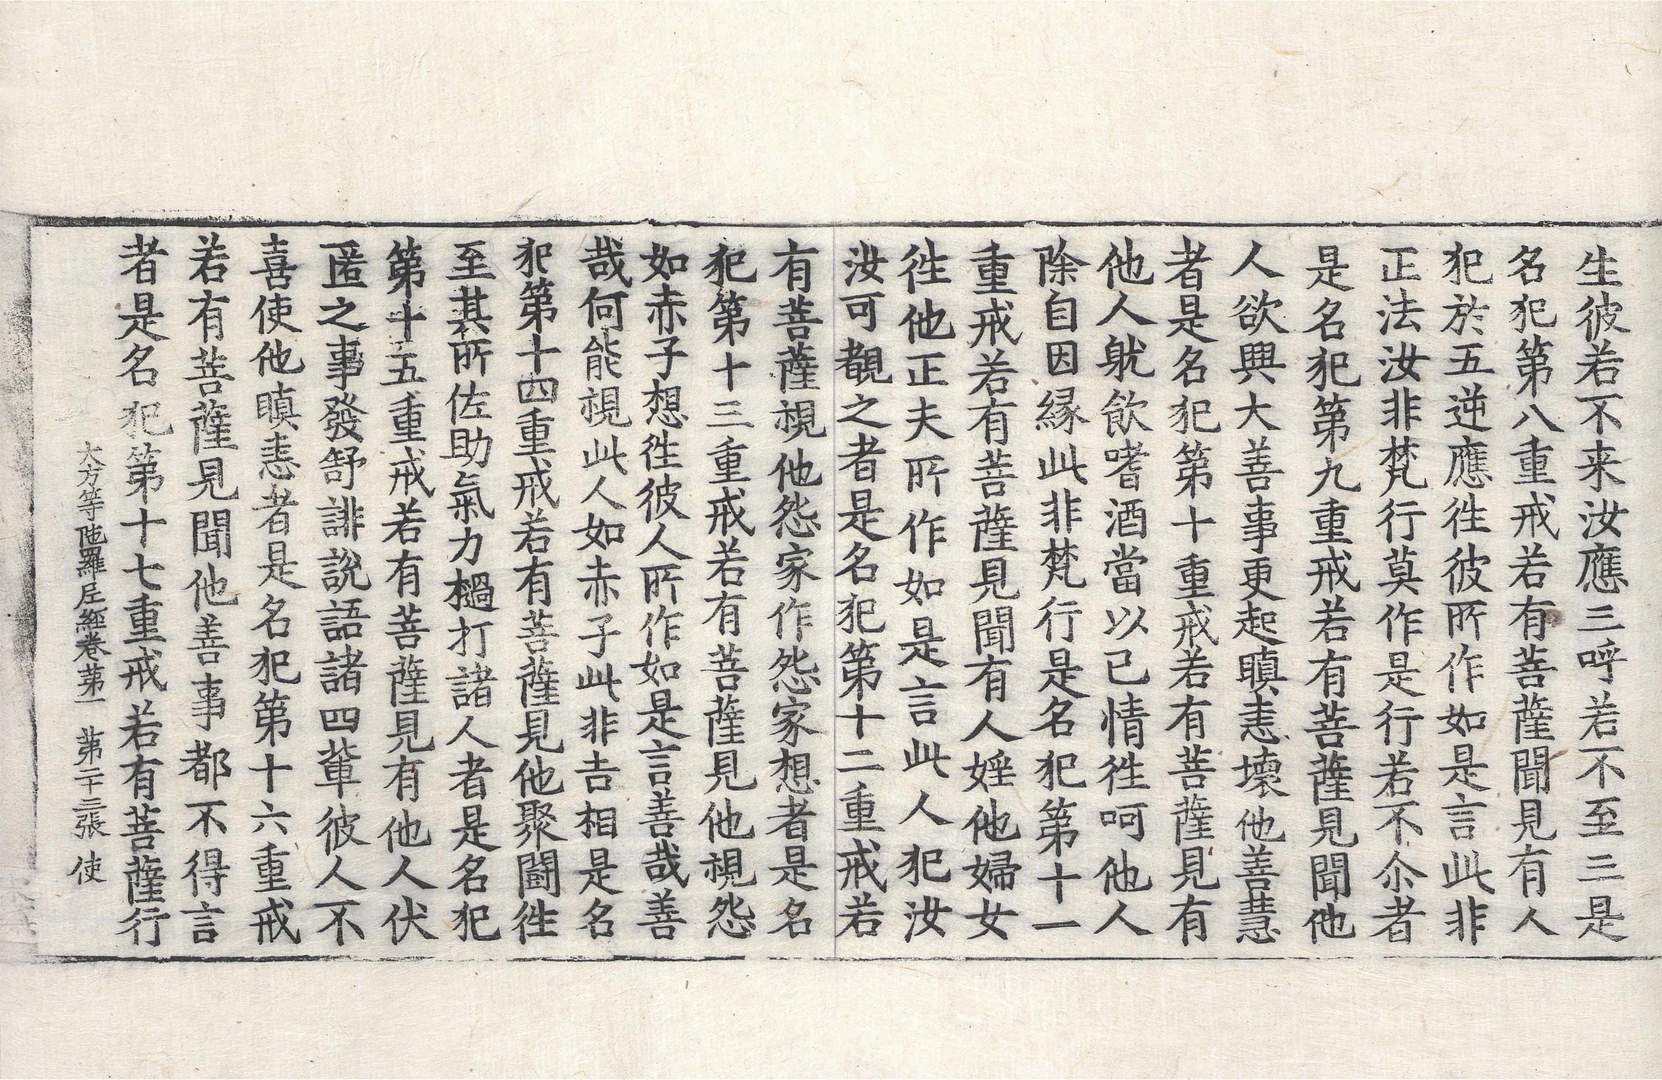 生彼若不来汝應三呼若不至三是
名犯第八重戒若有菩薩聞見有人
犯於五逆應徃彼所作如是言此非
正法汝非梵行莫作是行若不尒者
是名犯第九重戒若有菩薩見聞他
人欲興大善事更起瞋恚壞他善慧
者是名犯第十重戒若有菩薩見有
他人躭飲嗜酒當以己情徃呵他人
除自因緣此非梵行是名犯第十一
重戒若有菩薩見聞有人婬他婦女
徃他正夫所作如是言此人犯汝
汝可觀之者是名犯第十二重戒若
有菩薩視他怨家作怨家想者是名
犯第十三重戒若有菩薩見他視怨
如赤子想徃彼人所作如是言善哉善
哉何能視此人如赤子此非吉相是名
犯第十四重戒若有菩薩見他聚鬪徃
至其所佐助氣力檛打諸人者是名犯
第十五重戒若有菩薩見有他人伏
匿之事發舒誹說語諸四輩彼人不
喜使他瞋恚者是名犯第十六重戒
若有菩薩見聞他善事都不得言
者是名犯第十七重戒若有菩薩行
大方等陁羅尼經卷苐一 苐二十三張 使